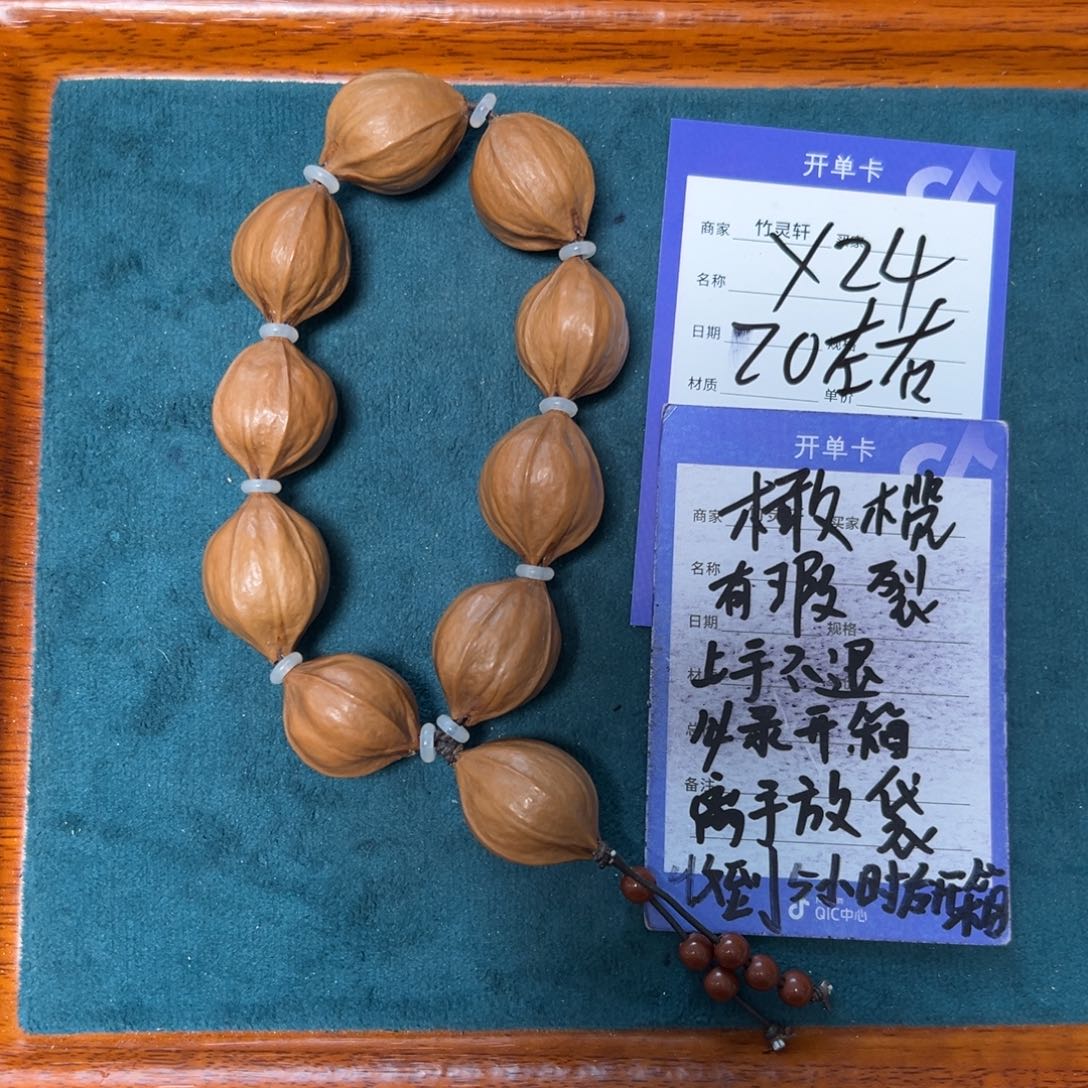 开单卡
商家 竹灵轩 买家
Y24
名称
日期 规格
20左右
材质 单价
开单卡
商家 买家
橄榄
名称
有瑕裂
日期 规格
上手不退
必录开箱
备注
离手放袋
收到5小时后开箱
QIC中心